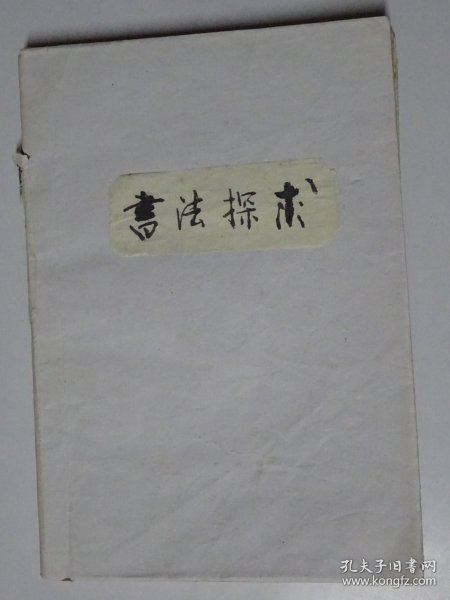 書法探求
孔夫子旧书网
www.kongfz.com